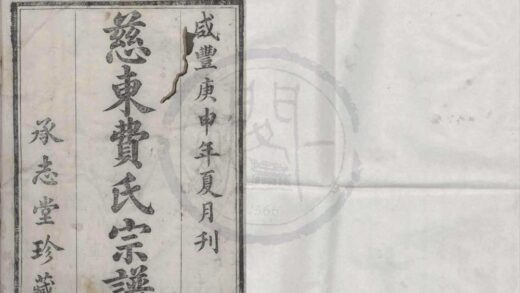 咸豐庚申年夏月刊
慈東費氏宗譜
承志堂珍藏